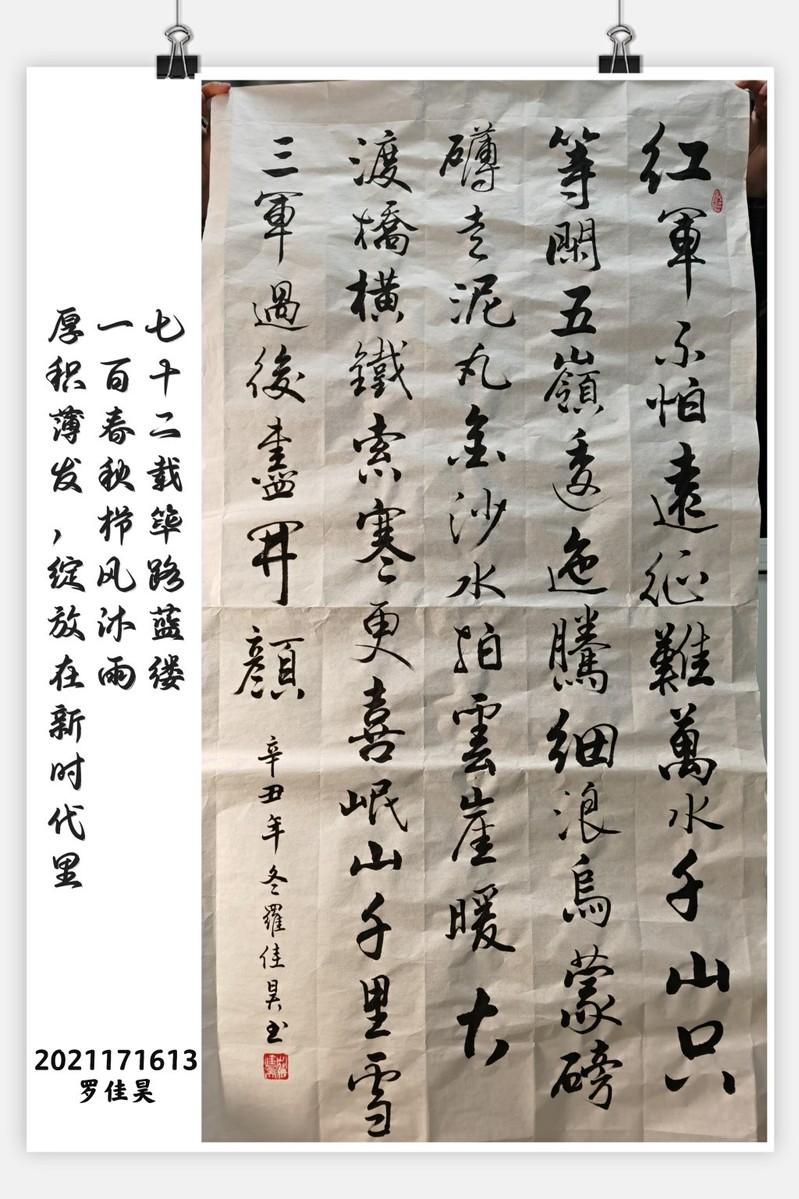 紅軍不怕遠征難萬水千山只
等閑五嶺逶迤騰細浪烏蒙磅
礴走泥丸金沙水拍雲崖暖大
渡橋橫鐵索寒更喜岷山千里雪
三軍過後盡開顏
辛丑年冬羅佳昊书
七十二载筚路蓝缕
一百春秋栉风沐雨
厚积薄发，绽放在新时代里
2021171613
罗佳昊